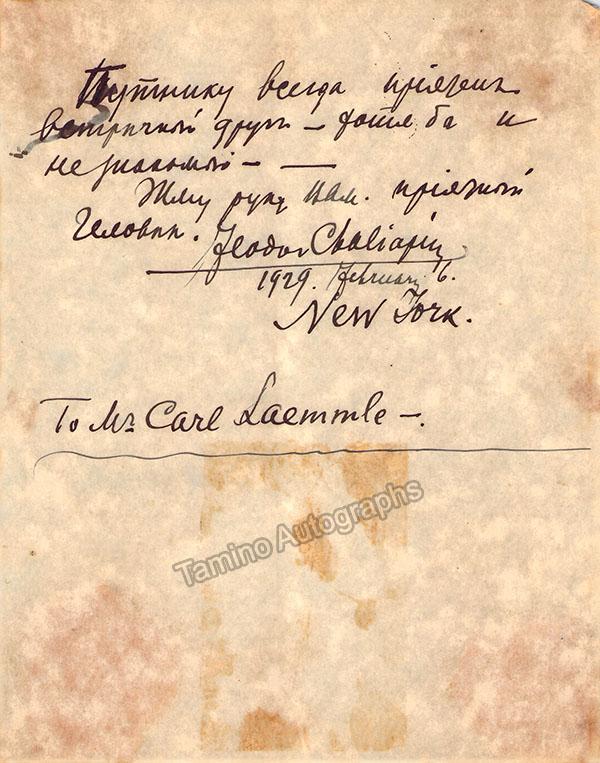 Путнику всегда пріязенъ
встрѣчный другъ – хотя ба и
незнакомый – —
Жму руку Вам. пріязный
Человѣк. Feodor Chaliapin
1929. February 6.
New York.
To Mr Carl Laemmle –.
Tamino Autographs